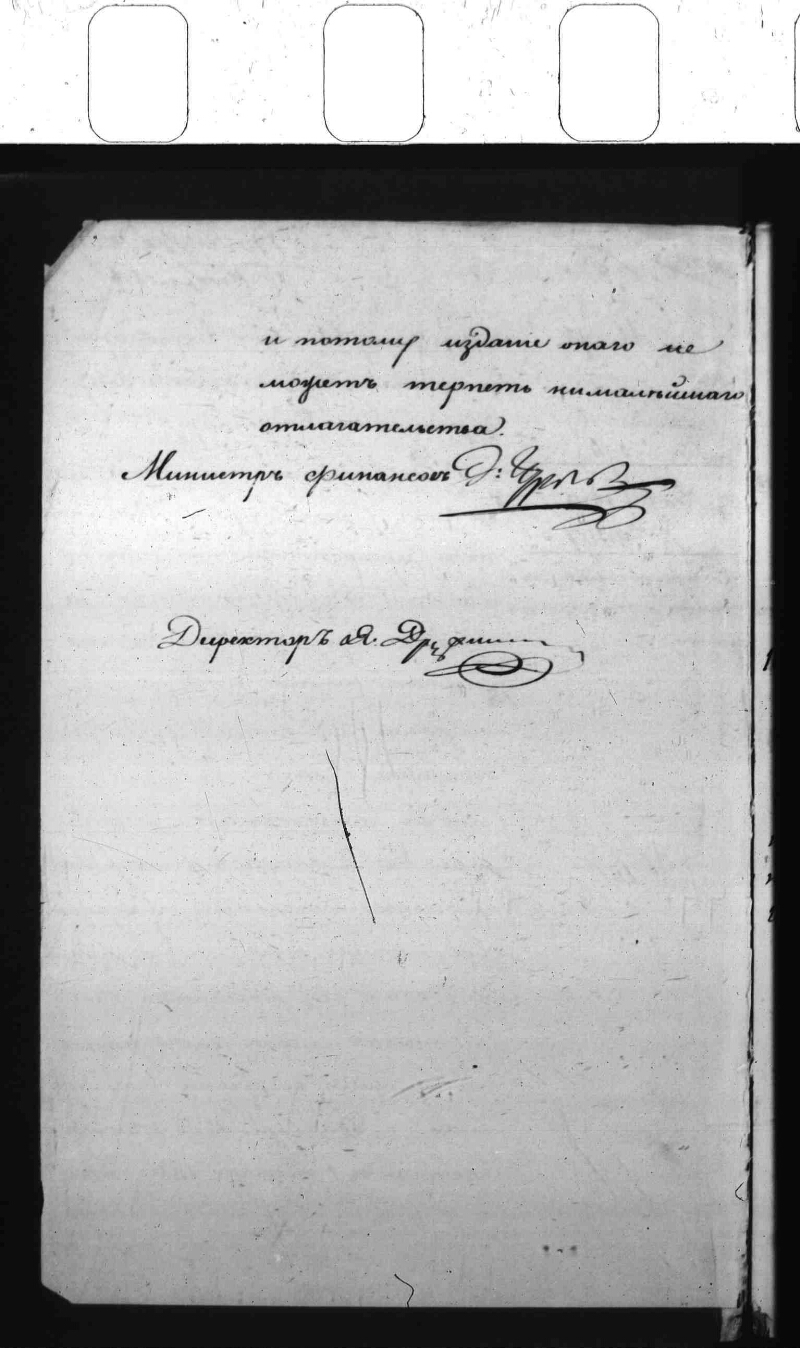 и потому издание онаго не
можетъ терпеть нималѣйшаго
отлагательства.
Министръ финансовъ Д: Гурьевъ
Директоръ Я. Дружининъ